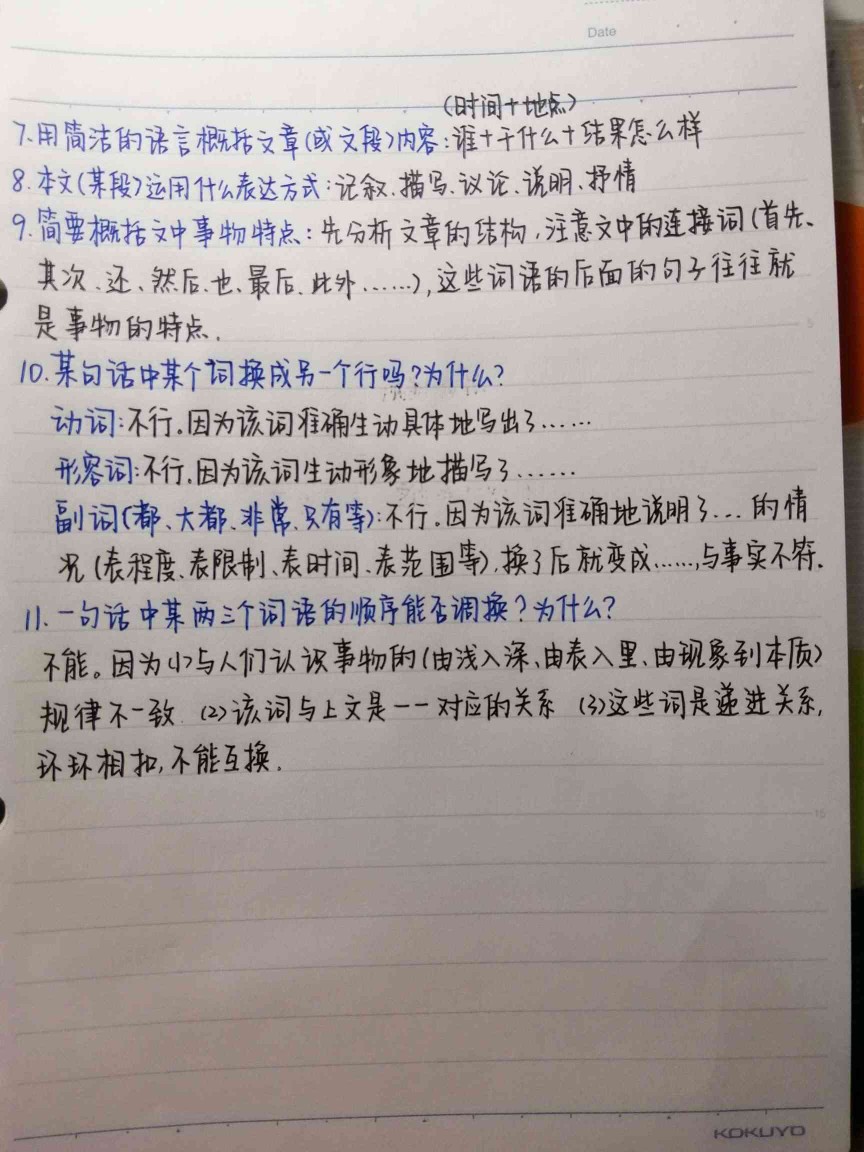 Date
(时间+地点)
7.用简洁的语言概括文章(或文段)内容:谁+干什么+结果怎么样
8.本文(某段)运用什么表达方式:记叙、描写、议论、说明、抒情
9.简要概括文中事物特点:先分析文章的结构,注意文中的连接词(首先、
其次、还、然后、也、最后、此外……),这些词语的后面的句子往往就
是事物的特点.
10.某句话中某个词换成另一个行吗?为什么?
动词:不行。因为该词准确生动具体地写出了……
形容词:不行.因为该词生动形象地描写了……
副词(都、大都、非常、只有等):不行。因为该词准确地说明了...的情
况(表程度、表限制、表时间、表范围等),换了后就变成……,与事实不符.
11.一句话中某两三个词语的顺序能否调换?为什么?
不能。因为(1)与人们认识事物的(由浅入深、由表入里、由现象到本质)
规律不一致.(2)该词与上文是一一对应的关系 (3)这些词是递进关系,
环环相扣,不能互换.
5
15
KOKUYO